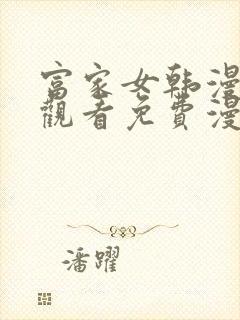 富家女韩漫
觀看免費漫
潘躍